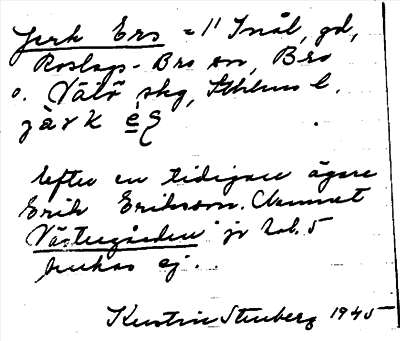 Jerk Ers = 1' Inål, gd,
Roslags-Bro sn, Bro
o. Vätö skg, Sthlms l.
jä̀rk e̲
Efter en tidigare ägare
Erik Eriksson. Namnet
Västergården jr kol. 5
brukas ej.
Kerstin Stenberg 1945